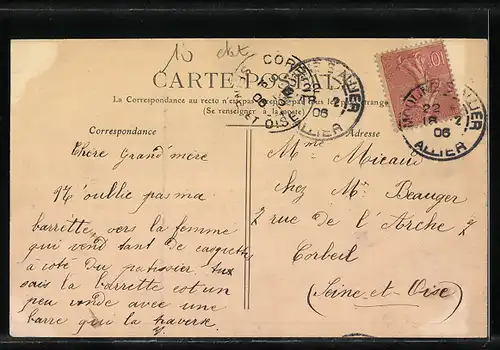 10 
CARTE POSTALE
La Correspondance au recto n'est pas
(Se renseigner à la poste)
Correspondance
Adresse
10
MOULINS S ALLIER
22
16 2
06
ALLIER
CORBEIL
OISE
06
Chère Grand'mère
N'oublie pas ma
barrette, vers la femme
qui vend tant de casquettes
à côté du patissier tu
sais la barrette est un
peu ronde avec une
barre qui la traverse
Mme Micaud
chez Mr Beauger
7 rue de l'Arche 7
Corbeil
(Seine-et-Oise)